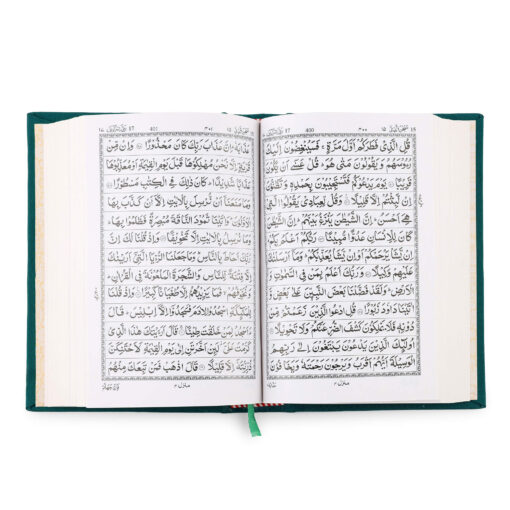 سبحٰن الذی ١٥ 15
400
17
قُلِ الَّذِىْ فَطَرَكُمْ اَوَّلَ مَرَّةٍ ۚ فَسَيُنْغِضُوْنَ اِلَيْكَ
رُءُوْسَهُمْ وَيَقُوْلُوْنَ مَتٰى هُوَ ؕ قُلْ عَسٰٓى اَنْ يَّكُوْنَ
قَرِيْبًا ۝ يَوْمَ يَدْعُوْكُمْ فَتَسْتَجِيْبُوْنَ بِحَمْدِهٖ وَتَظُنُّوْنَ
اِنْ لَّبِثْتُمْ اِلَّا قَلِيْلًا ۝ وَقُلْ لِّعِبَادِىْ يَقُوْلُوا الَّتِىْ
هِىَ اَحْسَنُ ؕ اِنَّ الشَّيْطٰنَ يَنْزَغُ بَيْنَهُمْ ؕ اِنَّ الشَّيْطٰنَ
كَانَ لِلْاِنْسَانِ عَدُوًّا مُّبِيْنًا ۝ رَبُّكُمْ اَعْلَمُ بِكُمْ ؕ
اِنْ يَّشَاْ يَرْحَمْكُمْ اَوْ اِنْ يَّشَاْ يُعَذِّبْكُمْ ؕ وَمَاۤ اَرْسَلْنٰكَ
عَلَيْهِمْ وَكِيْلًا ۝ وَرَبُّكَ اَعْلَمُ بِمَنْ فِى السَّمٰوٰتِ وَ
الْاَرْضِ ؕ وَلَقَدْ فَضَّلْنَا بَعْضَ النَّبِيّٖنَ عَلٰى بَعْضٍ
وَّاٰتَيْنَا دَاوٗدَ زَبُوْرًا ۝ قُلِ ادْعُوا الَّذِيْنَ زَعَمْتُمْ مِّنْ
دُوْنِهٖ فَلَا يَمْلِكُوْنَ كَشْفَ الضُّرِّ عَنْكُمْ وَلَا تَحْوِيْلًا ۝
اُولٰٓئِكَ الَّذِيْنَ يَدْعُوْنَ يَبْتَغُوْنَ اِلٰى رَبِّهِمُ
الْوَسِيْلَةَ اَيُّهُمْ اَقْرَبُ وَيَرْجُوْنَ رَحْمَتَهٗ وَيَخَافُوْنَ
منزل ٤
401
17
اِنَّ عَذَابَ رَبِّكَ كَانَ مَحْذُوْرًا ۝ وَاِنْ مِّنْ
قَرْيَةٍ اِلَّا نَحْنُ مُهْلِكُوْهَا قَبْلَ يَوْمِ الْقِيٰمَةِ اَوْ مُعَذِّبُوْهَا
عَذَابًا شَدِيْدًا ؕ كَانَ ذٰلِكَ فِى الْكِتٰبِ مَسْطُوْرًا ۝ وَ
مَا مَنَعَنَاۤ اَنْ نُّرْسِلَ بِالْاٰيٰتِ اِلَّاۤ اَنْ كَذَّبَ بِهَا
الْاَوَّلُوْنَ ؕ وَاٰتَيْنَا ثَمُوْدَ النَّاقَةَ مُبْصِرَةً فَظَلَمُوْا بِهَا ؕ
وَمَا نُرْسِلُ بِالْاٰيٰتِ اِلَّا تَخْوِيْفًا ۝ وَاِذْ قُلْنَا لَكَ اِنَّ
رَبَّكَ اَحَاطَ بِالنَّاسِ ؕ وَمَا جَعَلْنَا الرُّءْيَا الَّتِىْۤ اَرَيْنٰكَ
اِلَّا فِتْنَةً لِّلنَّاسِ وَالشَّجَرَةَ الْمَلْعُوْنَةَ فِى الْقُرْاٰنِ ؕ
وَنُخَوِّفُهُمْ ۙ فَمَا يَزِيْدُهُمْ اِلَّا طُغْيَانًا كَبِيْرًا ۝ وَاِذْ قُلْنَا
لِلْمَلٰٓئِكَةِ اسْجُدُوْا لِاٰدَمَ فَسَجَدُوْۤا اِلَّاۤ اِبْلِيْسَ ؕ قَالَ
ءَاَسْجُدُ لِمَنْ خَلَقْتَ طِيْنًا ۝ قَالَ اَرَءَيْتَكَ هٰذَا الَّذِىْ
كَرَّمْتَ عَلَىَّ لَئِنْ اَخَّرْتَنِ اِلٰى يَوْمِ الْقِيٰمَةِ لَاَحْتَنِكَنَّ
ذُرِّيَّتَهٗۤ اِلَّا قَلِيْلًا ۝ قَالَ اذْهَبْ فَمَنْ تَبِعَكَ مِنْهُمْ
منزل ٤